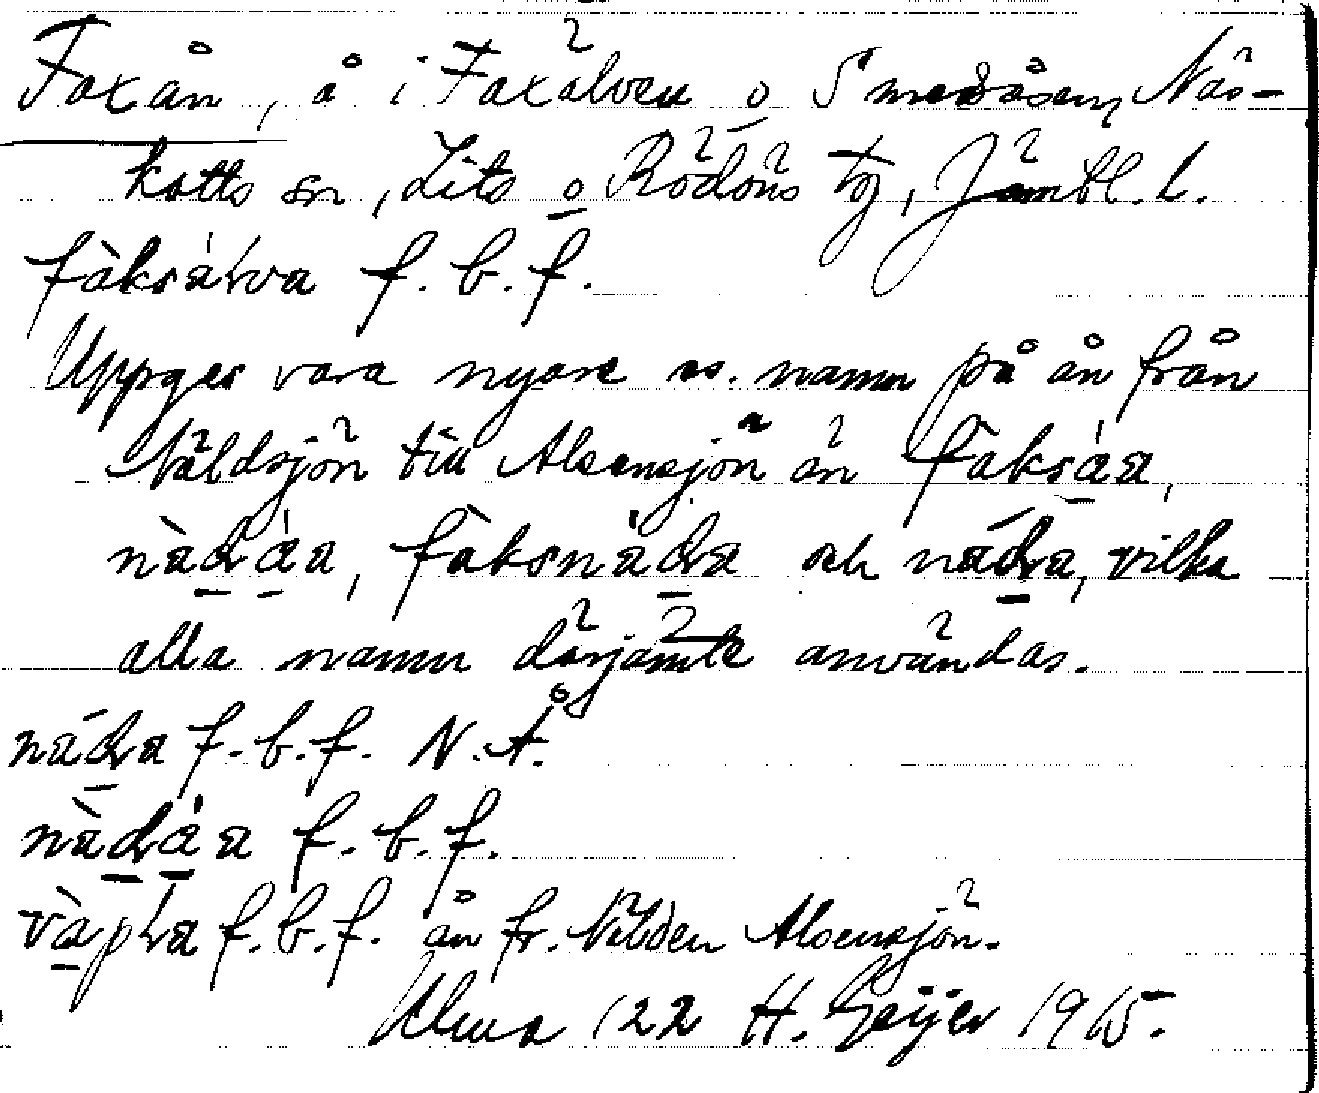 Faxån, å i Faxälven o Smedåsen, Näs-
kotts sn, Lits o Rödöns tg, Jämtl. l.
fàksálva f. b. f.
Uppges vara nyare ss. namn på ån från
Näldsjön till Alsensjön än fàksáa,
nàdráa, fàksnádra och nádra, vilka
alla namn därjämte användas.
nádra f. b. f. N. Å.
nàdráa f. b. f.
vàpla f. b. f. ån fr. Nälden Alsensjön.
Ulma 122 H. Geijer 1915.